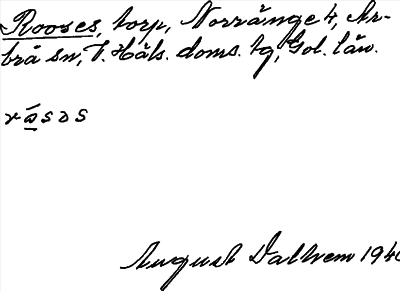 Rooses, torp, Norränge 4, Ar-
brå sn, V. Häls. doms. tg, Gvl. län.
rá̱sɔs
August Dahlvem 1940